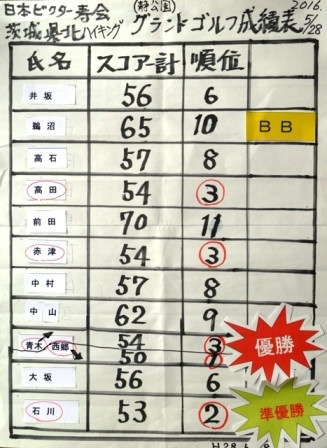 日本ビクター寿会 (静公園) 2016.
茨城県北ハイキング グランドゴルフ成績表 5/28
氏名 スコアー計 順位
井坂 56 6
鵜沼 65 10 BB
高石 57 8
高田 54 3
前田 70 11
赤津 54 3
中村 57 8
中山 62 9
青木 54 3
西郷 50
優勝
大坂 56 6
石川 53 2
準優勝